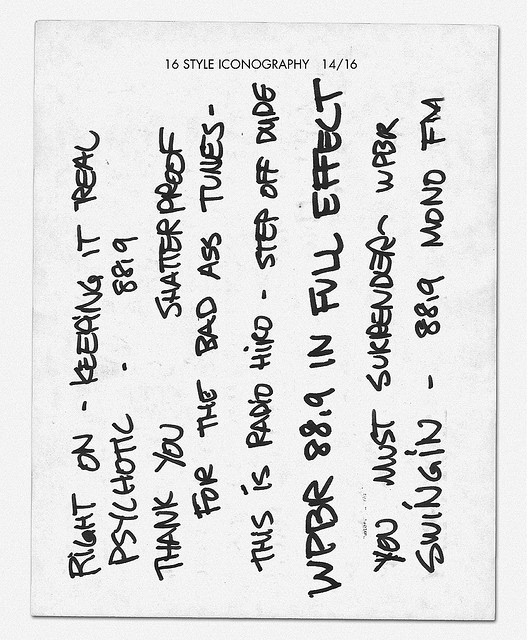 16 STYLE ICONOGRAPHY 14/16
RIGHT ON - KEEPING IT REAL
PSYCHOTIC - 88.9
THANK YOU SHATTERPROOF
FOR THE BAD ASS TUNES -
THIS IS RADIO HIRO - STEP OFF DUDE
WPBR 88.9 IN FULL EFFECT
YOU MUST SURRENDER~ WPBR
SWINGIN - 88.9 MONO FM